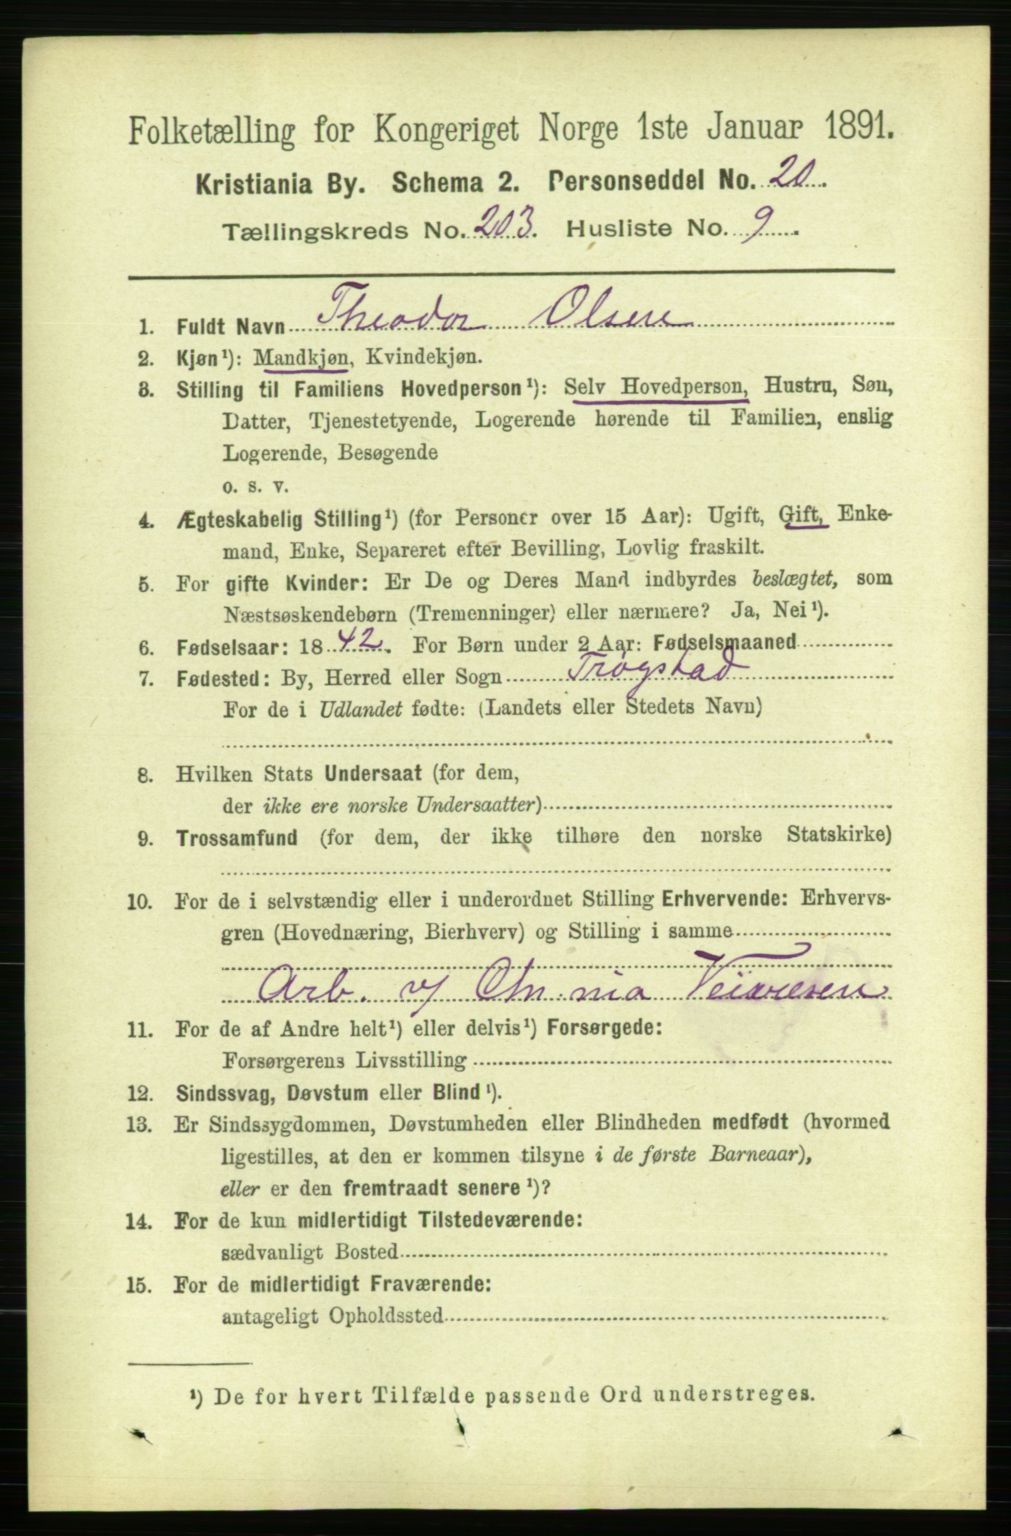 Folketælling for Kongeriget Norge 1ste Januar 1891.
Kristiania By. Schema 2. Personseddel No. 20.
Tællingskreds No. 203. Husliste No. 9.
1. Fuldt Navn Theodor Olsen
2. Kjøn¹): Mandkjøn, Kvindekjøn.
3. Stilling til Familiens Hovedperson¹): Selv Hovedperson, Hustru, Søn,
Datter, Tjenestetyende, Logerende hørende til Familien, enslig
Logerende, Besøgende
o. s. v.
4. Ægteskabelig Stilling¹) (for Personer over 15 Aar): Ugift, Gift, Enke-
mand, Enke, Separeret efter Bevilling, Lovlig fraskilt.
5. For gifte Kvinder: Er De og Deres Mand indbyrdes beslægtet, som
Næstsøskendebørn (Tremenninger) eller nærmere? Ja, Nei¹).
6. Fødselsaar: 1842. For Børn under 2 Aar: Fødselsmaaned
7. Fødested: By, Herred eller Sogn Trøgstad
For de i Udlandet fødte: (Landets eller Stedets Navn)
8. Hvilken Stats Undersaat (for dem,
der ikke ere norske Undersaatter)
9. Trossamfund (for dem, der ikke tilhøre den norske Statskirke)
10. For de i selvstændig eller i underordnet Stilling Erhvervende: Erhvervs-
gren (Hovednæring, Bierhverv) og Stilling i samme
Arb. v/ Chr.nia Veivæsen
11. For de af Andre helt¹) eller delvis¹) Forsørgede:
Forsørgerens Livsstilling
12. Sindssvag, Døvstum eller Blind¹).
13. Er Sindssygdommen, Døvstumheden eller Blindheden medfødt (hvormed
ligestilles, at den er kommen tilsyne i de første Barneaar),
eller er den fremtraadt senere¹)?
14. For de kun midlertidigt Tilstedeværende:
sædvanligt Bosted
15. For de midlertidigt Fraværende:
antageligt Opholdssted
¹) De for hvert Tilfælde passende Ord understreges.